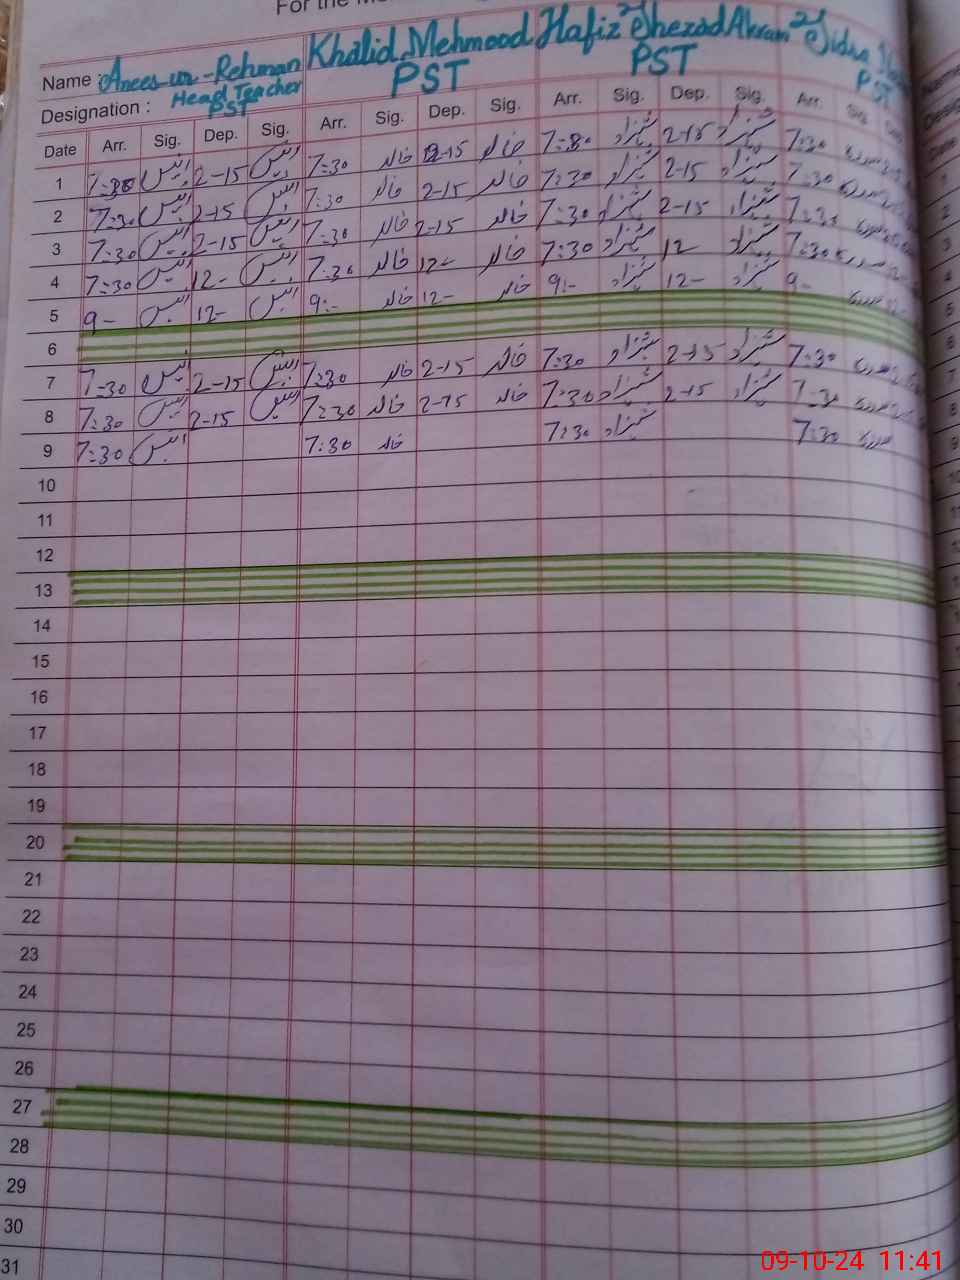 For the M
Name : Anees-ur-Rehman Khalid Mehmood Hafiz Shezad Akram Sidra
Designation : Head Teacher PST PST PST PST
Date Arr. Sig. Dep. Sig. Arr. Sig. Dep. Sig. Arr. Sig. Dep. Sig. Arr. Sig.
1 7:30 انیس 2-15 انیس 7:30 خالد 2-15 خالد 7:30 شہزاد 2-15 شہزاد 7:30
2 7:30 انیس 2-15 انیس 7:30 خالد 2-15 خالد 7:30 شہزاد 2-15 شہزاد 7:30
3 7:30 انیس 2-15 انیس 7:30 خالد 2-15 خالد 7:30 شہزاد 2-15 شہزاد 7:30
4 7:30 انیس 12- انیس 7:30 خالد 12- خالد 7:30 شہزاد 12- شہزاد 7:30
5 9- انیس 12- انیس 9:- خالد 12- خالد 9:- شہزاد 12- شہزاد 9-
6
7 7:30 انیس 2-15 انیس 7:30 خالد 2-15 خالد 7:30 شہزاد 2-15 شہزاد 7:30
8 7:30 انیس 2-15 انیس 7:30 خالد 2-15 خالد 7:30 شہزاد 2-15 شہزاد 7:30
9 7:30 انیس 7:30 خالد 7:30 شہزاد 7:30
10
11
12
13
14
15
16
17
18
19
20
21
22
23
24
25
26
27
28
29
30
31
09-10-24 11:41